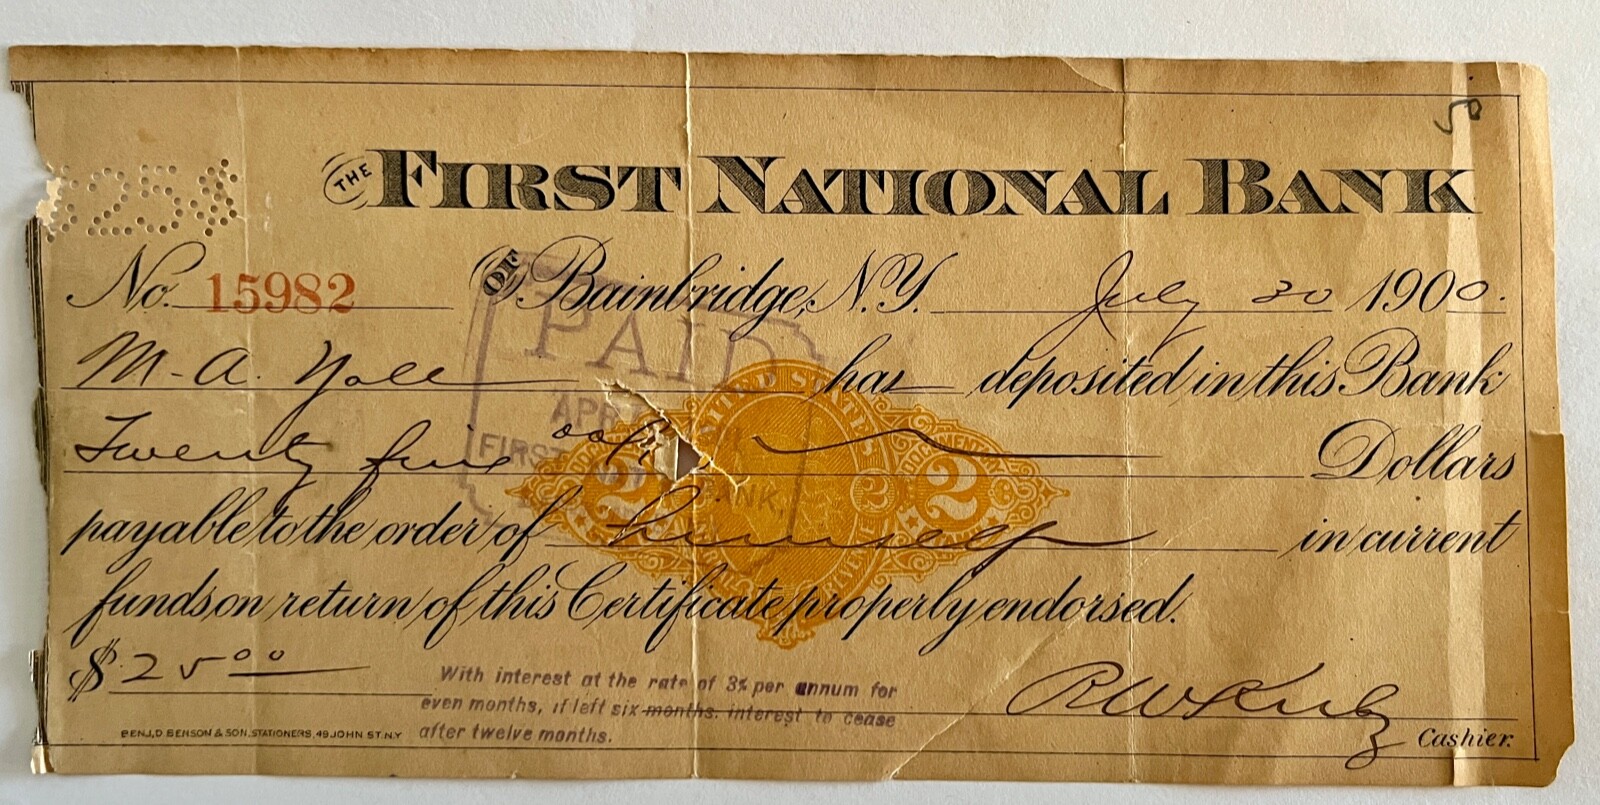 50
THE FIRST NATIONAL BANK
$25$
No. 15982 OF Bainbridge, N.Y. July 30 1900.
PAID
M-A. has deposited in this Bank
APR
UNITED STATES
Twenty five Dollars
FIRST BANK,
DOCUMENTARY
2 2 2
payable to the order of himself in current
funds on return of this Certificate properly endorsed.
$25 00
With interest at the rate of 3% per annum for
even months, if left six months. interest to cease
after twelve months.
R W Kirby
BENJ. D. BENSON & SON, STATIONERS, 49 JOHN ST. N.Y
Cashier.